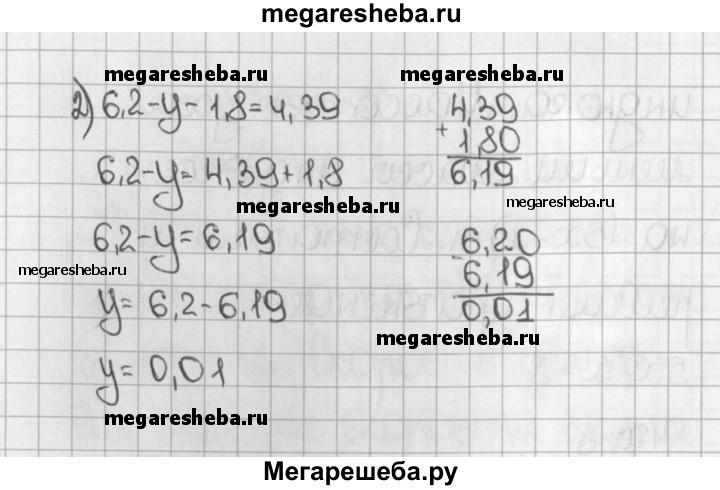 megaresheba.ru
megaresheba.ru
megaresheba.ru
2) 6,2-y-1,8=4,39
6,2-y=4,39+1,8
megaresheba.ru
6,2-y=6,19
megaresheba.ru
y= 6,2-6,19
y= 0,01
megaresheba.ru
4,39
+
1,80
6,19
megaresheba.ru
6,20
-
6,19
0,01
megaresheba.ru
Мегарешеба.ру